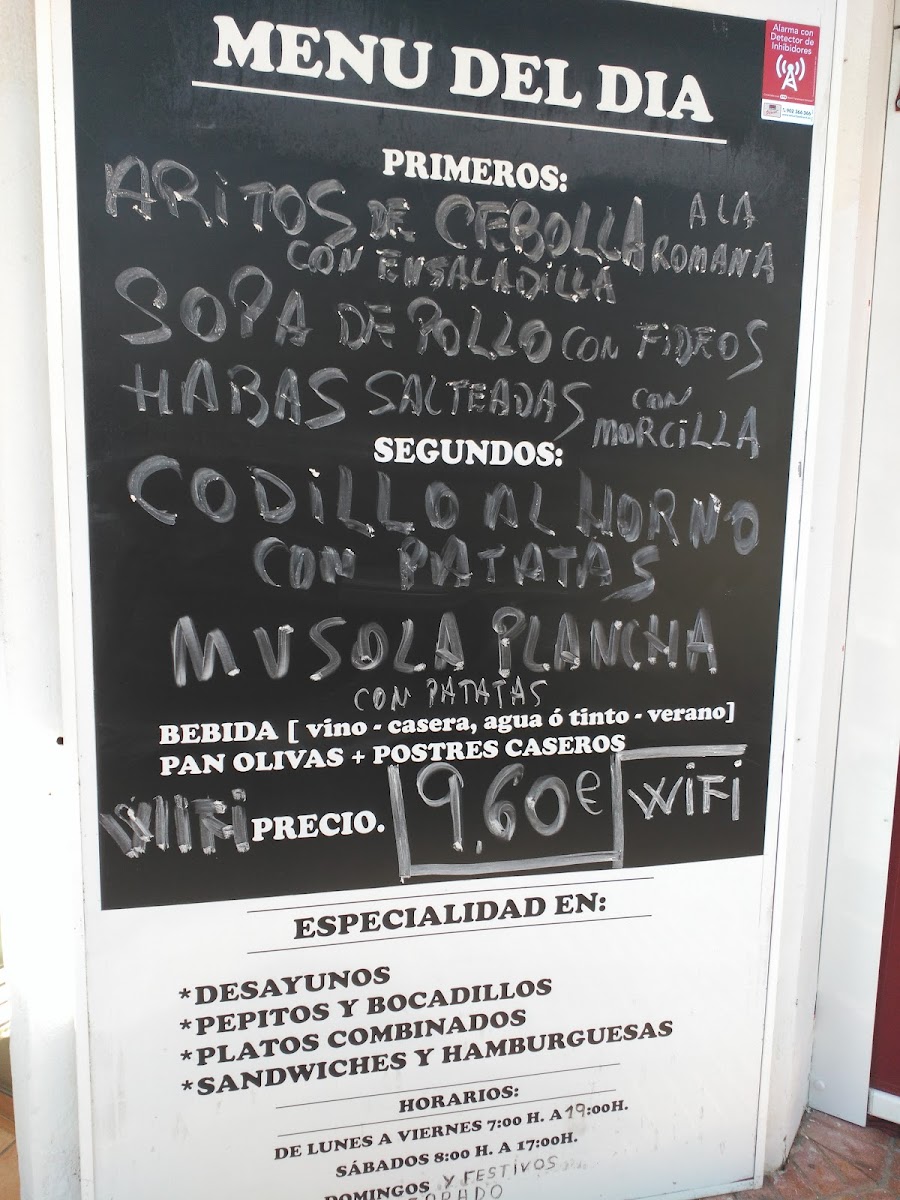 MENU DEL DIA
Alarma con
Detector de
Inhibidores
PRIMEROS:
ARiTOS DE CEBOLLA A LA
ROMANA
CON ENSALADiLLA
SOPA DE POLLO CON FiDEOS
HABAS SALTEADAS CON
MORCiLLA
SEGUNDOS:
CODiLLO AL HORNO
CON PATATAS
MUSOLA PLANCHA
CON PATATAS
BEBIDA [ vino - casera, agua ó tinto - verano]
PAN OLIVAS + POSTRES CASEROS
WIFi PRECIO. 9,60€ WiFi
ESPECIALIDAD EN:
*DESAYUNOS
*PEPITOS Y BOCADILLOS
*PLATOS COMBINADOS
*SANDWICHES Y HAMBURGUESAS
HORARIOS:
DE LUNES A VIERNES 7:00 H. A 19:00H.
SÁBADOS 8:00 H. A 17:00H.
DOMINGOS Y FESTIVOS